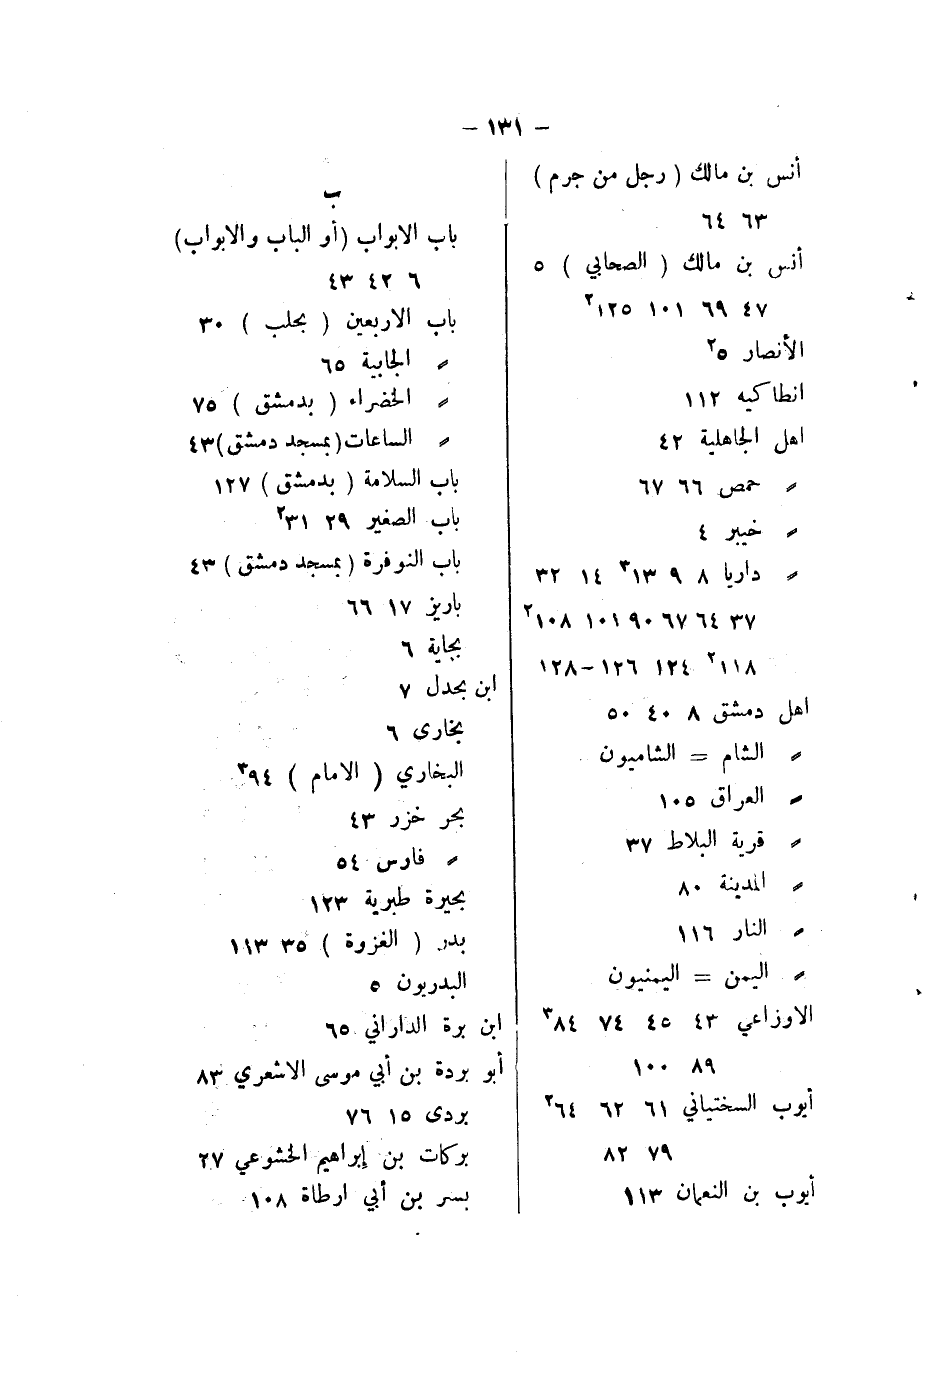 – ١٣١ –
أنس بن مالك ( رجل من جرم )
٦٣ ٦٤
أنس بن مالك ( الصحابي ) ٥
٤٧ ٦٩ ١٠١ ١٢٥²
الأنصار ٥²
انطاكيه ١١٢
اهل الجاهلية ٤٢
〃 حمص ٦٦ ٦٧
〃 خيبر ٤
〃 داريا ٨ ٩ ١٣³ ١٤ ٣٢
٣٧ ٦٤ ٦٧ ٩٠ ١٠١ ١٠٨²
١١٨² ١٢٤ ١٢٦–١٢٨
اهل دمشق ٨ ٤٠ ٥٠
〃 الشام = الشاميون
〃 العراق ١٠٥
〃 قرية البلاط ٣٧
〃 المدينة ٨٠
〃 النار ١١٦
〃 اليمن = اليمنيون
الاوزاعي ٤٣ ٤٥ ٧٤ ٨٤³
٨٩ ١٠٠
أيوب السختياني ٦١ ٦٢ ٦٤²
٧٩ ٨٢
أيوب بن النعمان ١١٣
ب
باب الابواب (أو الباب والابواب)
٦ ٤٢ ٤٣
باب الاربعين ( بحلب ) ٣٠
〃 الجابية ٦٥
〃 الخضراء ( بدمشق ) ٧٥
〃 الساعات (بمسجد دمشق) ٤٣
باب السلامة ( بدمشق ) ١٢٧
باب الصغير ٢٩ ٣١²
باب النوفرة ( بمسجد دمشق ) ٤٣
باريز ١٧ ٦٦
بجاية ٦
ابن بجدل ٧
بخارى ٦
البخاري ( الامام ) ٩٤³
بحر خزر ٤٣
〃 فارس ٥٤
بحيرة طبرية ١٢٣
بدر ( الغزوة ) ٣٥ ١١٣
البدريون ٥
ابن برة الداراني ٦٥
أبو بردة بن أبي موسى الاشعري ٨٣
بردى ١٥ ٧٦
بركات بن إبراهيم الخشوعي ٢٧
بسر بن أبي ارطاة ١٠٨